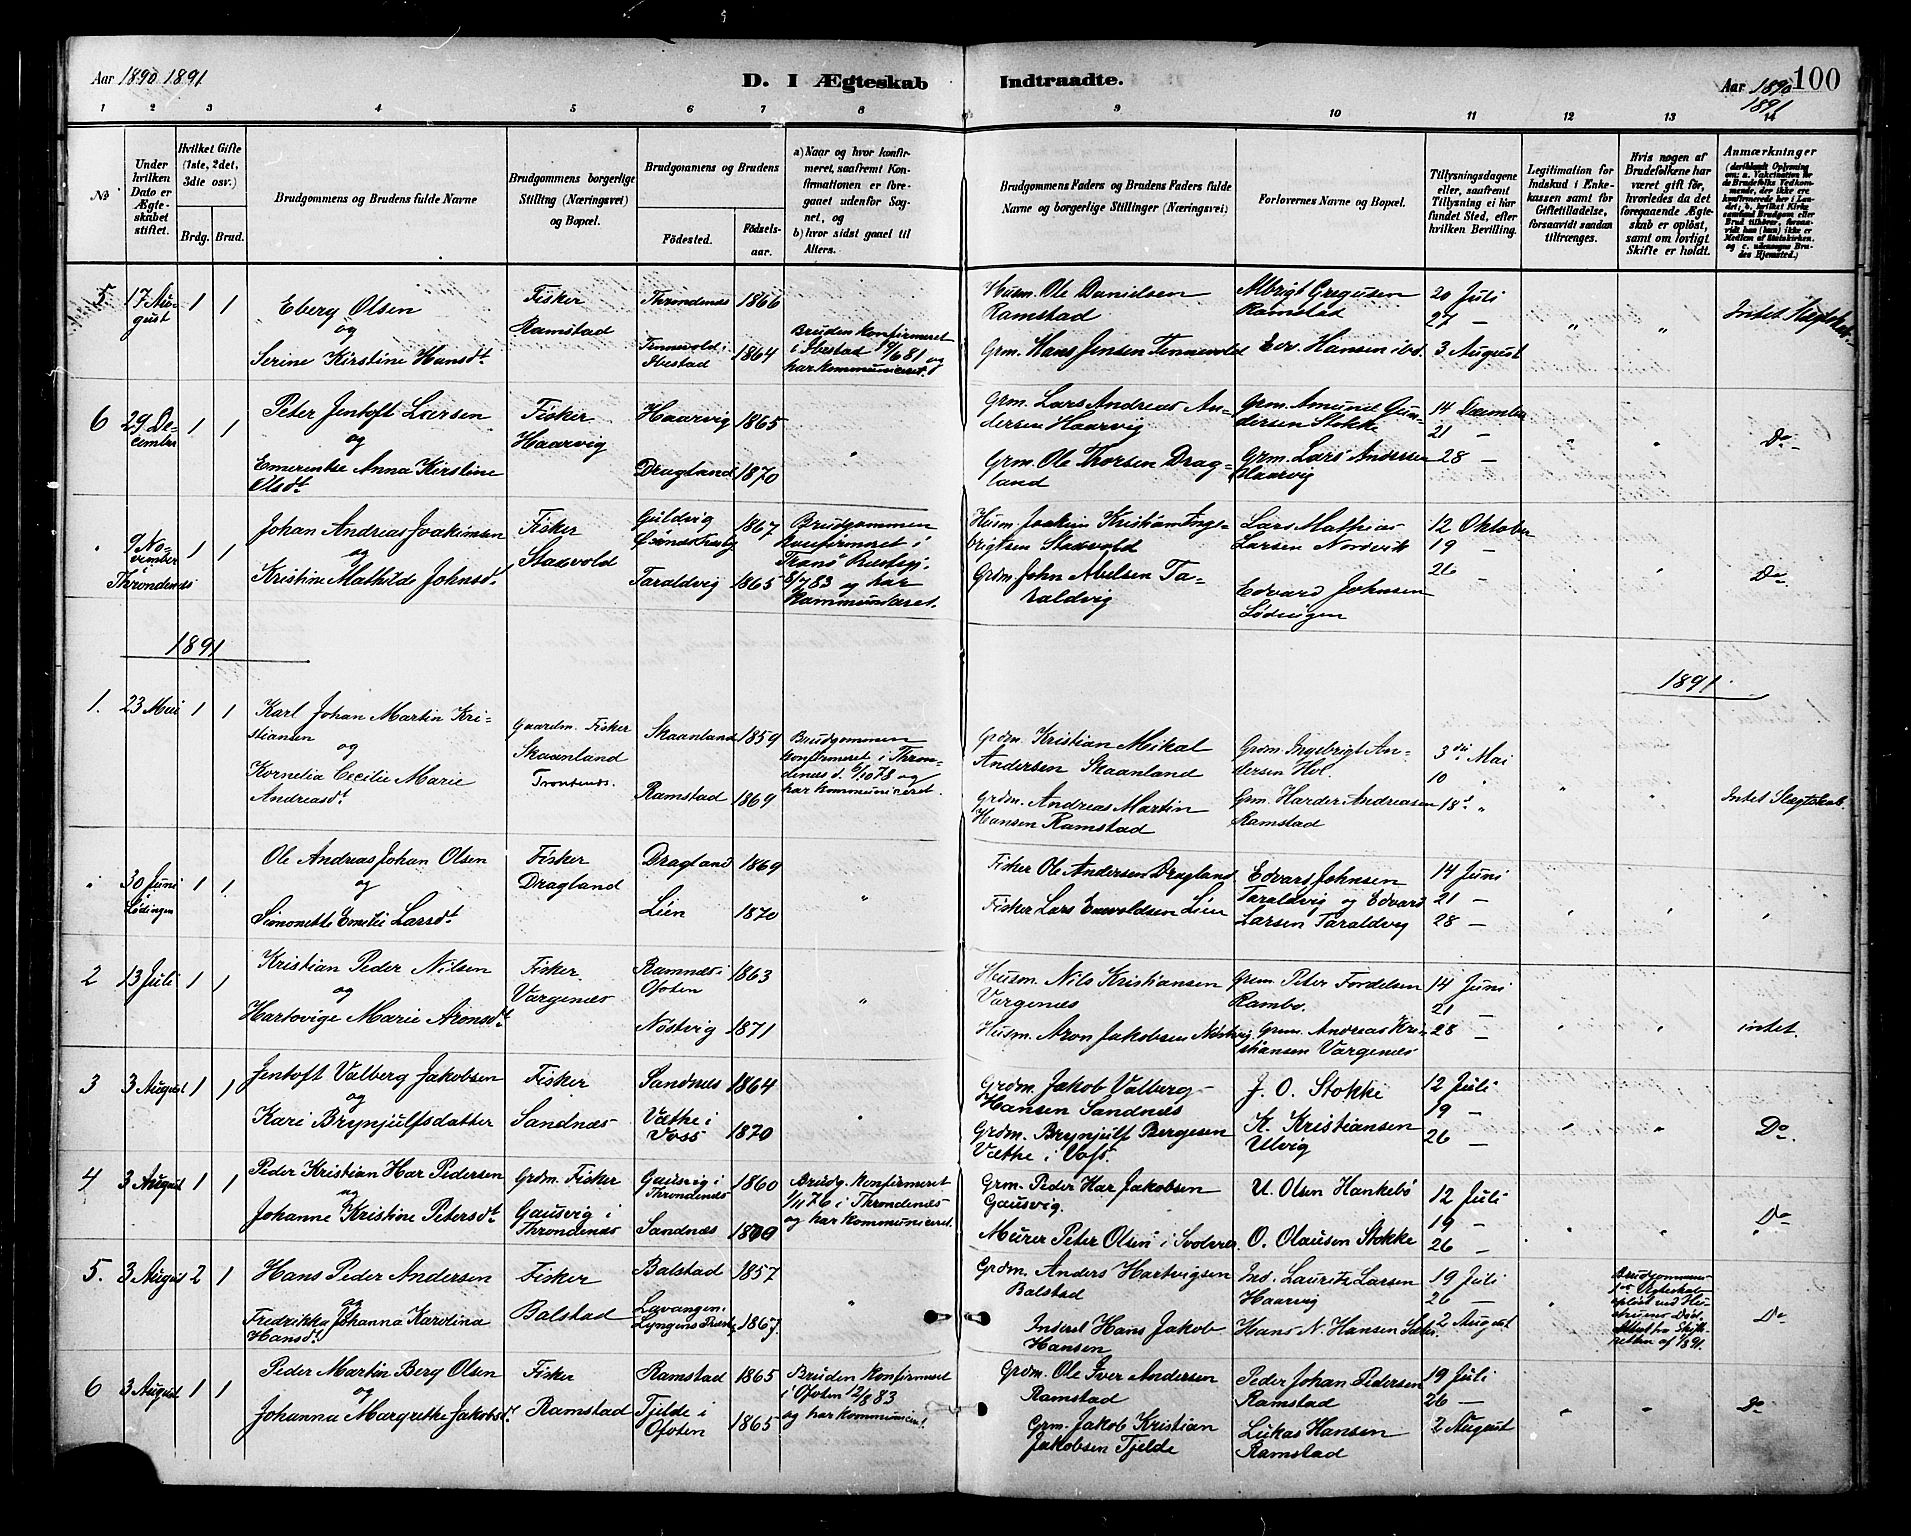 Aar 1890 1891
D. I Ægteskab
Indtraadte.
Aar 1890 100
1891
1 2 3 4 5 6 7 8 9 10 11 12 13 14
№
Under hvilken Dato er Ægteskabet stiftet.
Hvilket Gifte (1ste, 2det, 3die osv.)
Brdg. Brud.
Brudgommens og Brudens fulde Navne
Brudgommens borgerlige Stilling (Næringsvei) og Bopæl.
Brudgommens og Brudens
Födested.
Födselsaar.
a) Naar og hvor konfirmeret, saafremt Konfirmationen er foregaaet udenfor Sognet, og
b) hvor sidst gaaet til Alters.
Brudgommens Faders og Brudens Faders fulde Navne og borgerlige Stillinger (Næringsvei)
Forlovernes Navne og Bopæl.
Tillysningsdagene eller, saafremt Tillysning ei har fundet Sted, efter hvilken Bevilling.
Legitimation for Indskud i Enkekassen samt for Giftetilladelse, forsaavidt saadan tiltrænges.
Hvis nogen af Brudefolkene har været gift før, hvorledes da det foregaaende Ægteskab er oplöst, samt om lovligt Skifte er holdt.
Anmærkninger
5 17 August 1 1
Eberg Olsen
og
Serine Kirstine Hansdt
Fisker
Ramstad
Throndenes 1866
Tennevold i Ibestad 1864
Bruden konfirmeret i Ibestad 19/6 81 og har kommuniceret.
Husm. Ole Danielsen
Ramstad
Grm. Hans Jensen Tennevold
Albrigt Gregusen
Ramstad
Edv. Hansen ibd.
20 Juli
27 —
3 August
Intet Slægtskab.
6 29 December 1 1
Peter Jentoft Larsen
og
Emerentse Anna Kirstine
Olsdt
Fisker
Haarvig
Haarvig 1865
Dragland 1870
Grm. Lars Andreas Andersen Haarvig
Grm. Ole Thorsen Dragland
Grm. Amund Gundersen Stokke
Grm. Lars Andersen
Haarvig
14 December
21 —
28 —
Do
9 November 1 1
Throndenes
Johan Andreas Joakimsen
og
Kristine Mathilde Johnsd.
Fisker
Staxvold
Guldvig 1867
Taraldvig 1865
Brudgommen konfirmeret i Tranö Præstgj. 8/7 83 og har kommuniceret.
Husm. Joakim Kristian Ingebrigtsen Staxvold
Grdm John Abelsen Taraldvig
Lars Mathias
Larsen Nordvik
Edvard Johnsen
Lödingen
12 Oktober
19 —
26 —
Do
1891
1891.
1. 23 Mai 1 1
Karl Johan Martin Kristiansen
og
Kornelia Cecilie Marie
Andreasdt
Gaardm. Fisker
Skaanland
Trondenes.
Skaanland 1859
Ramstad 1869
Brudgommen konfirmeret i Throndenes d. 6/10 78 og har kommuniceret.
Grdm. Kristian Meikal
Andersen Skaanland
Grdm. Andreas Martin
Hansen Ramstad
Grdm. Ingebrigt Andersen Hol.
Grm. Harder Andreasen
Ramstad
3die Mai
10 "
18d "
Intet Slægtskab.
30 Juni 1 1
Lödingen
Ole Andreas Johan Olsen
og
Simonette Emelie Larsdt
Fisker
Dragland
Dragland 1869
Lien 1870
Fisker Ole Andersen Dragland
Fisker Lars Enevoldsen Lien
Edvard Johnsen
Taraldvig og Edvard
Larsen Taraldvig
14 Juni
21 —
28 —
2 13 Juli 1 1
Kristian Peder Nilsen
og
Hartvige Marie Aronsdt
Fisker
Vargenæs
Ramnes i Ofoten 1863
Nöstvig 1871
Husm. Nils Kristiansen
Vargenæs
Husm. Aron Jakobsen Nöstvig
Grm. Peter Fordelsen
Rambö.
Grm. Andreas Kristiansen Vargenæs
14 Juni
21 —
28 —
intet.
3 3 August 1 1
Jentoft Valberg Jakobsen
og
Kari Brynjulfsdatter
Fisker
Sandnæs
Sandnæs 1864
Væthe i Voss 1870
Grdm. Jakob Valberg
Hansen Sandnæs
Grdm. Brynjulf Bergesen
Væthe i Voss.
J. O. Stokke
K. Kristiansen
Ulvig
12 Juli
19 —
26 —
Do.
4 3 August 1 1
Peder Kristian Har Pedersen
og
Johanne Kristine Petersdt
Grdm. Fisker
Gausvig i Throndenæs
Gausvig i Throndenæs 1860
Sandnæs
Brudg. konfirmeret 1/11 76 i Throndenæs og har kommuniceret.
Grm. Peder Har Jakobsen
Gausvig.
Murer Peter Olsen i Svolvær
U. Olsen Hankebö
O. Olauson Stokke
12 Juli
19 —
26 —
Do
5. 3 August 2 1
Hans Peder Andersen
og
Fredrikka Johanna Karolina
Hansdt
Fisker
Balstad
Balstad 1857
Lavangen i Lyngens Præstg. 1867
Grdm. Anders Hartvigsen
Balstad
Inderst Hans Jakob
Hansen
Ind. Lauritz Larsen
Haarvig
Hans N. Hansen
19 Juli
26 —
2 August
Do
6 3 August 1 1
Peder Martin Berg Olsen
og
Johanna Margrethe Jakobsd.
Fisker
Ramstad
Ramstad 1865
Tjelde i Ofoten 1865
Bruden konfirmeret i Ofoten 12/8 83 og har kommunicert.
Grdm. Ole Iver Andersen
Ramstad
Grm. Jakob Kristian
Jakobsen Tjelde
Peder Johan Pedersen
Ramstad
Lukas Hansen
Ramstad
19 Juli
26 —
2 August
Do